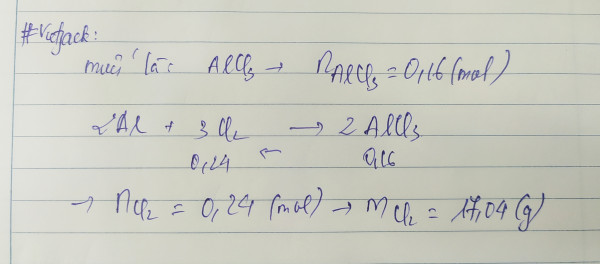 #Vietjack:
muối là: AlCl₃ → n_AlCl₃ = 0,16 (mol)
2Al + 3Cl₂ → 2AlCl₃
0,24 ← 0,16
→ n_Cl₂ = 0,24 (mol) → m_Cl₂ = 17,04 (g)